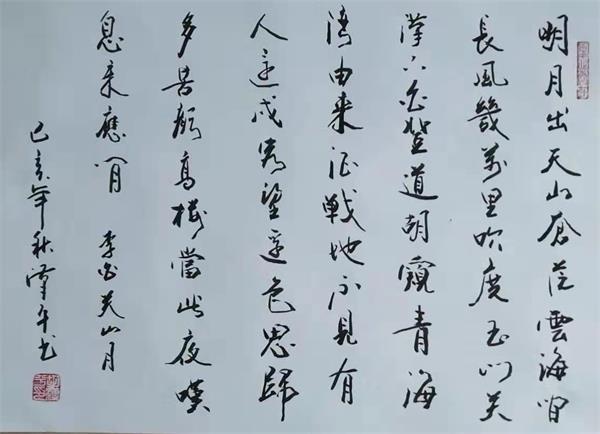 明月出天山蒼茫雲海間
長風幾萬里吹度玉门关
漢下白登道胡窺青海
灣由来征戰地不見有
人還戍客望邊色思歸
多苦顏高樓當此夜嘆
息未應閒 李白关山月
己亥年秋 书